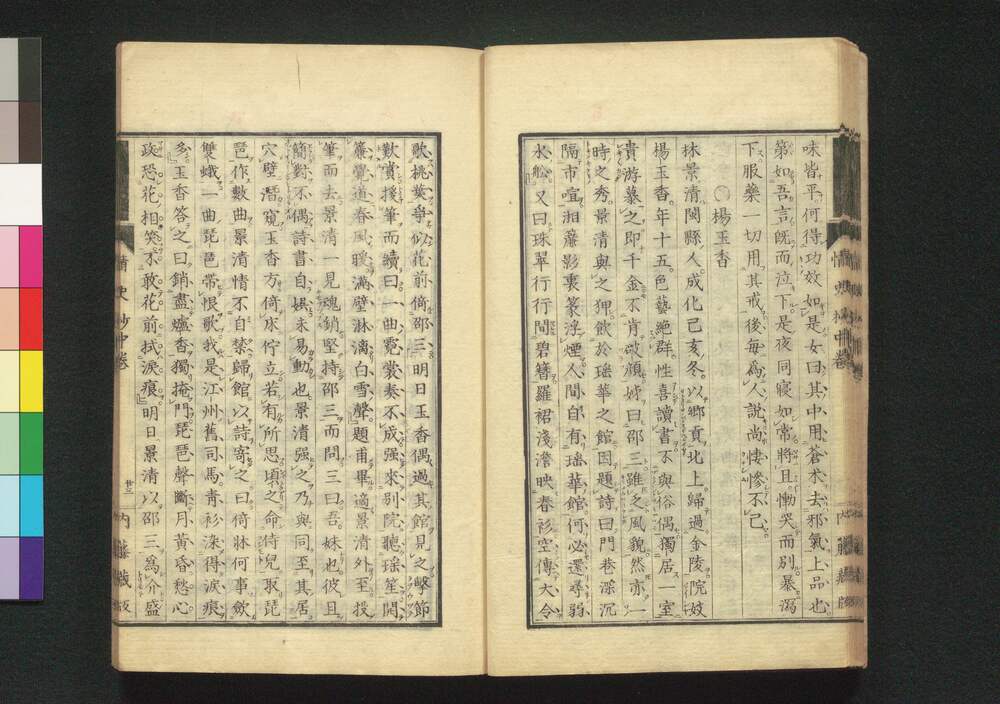 味皆平何得功效如是女曰其中用蒼朮去邪氣上品也
第如吾言既而泣下是夜同寝如常將旦慟哭而別暴瀉
下服藥一切用其戒後每爲人說尚悽慘不已
○楊玉香
林景清閩縣人成化己亥冬以鄉貢北上歸過金陵院妓
楊玉香年十五色藝絶群性喜讀書不與俗偶獨居一室
貴游慕之即千金不肯破顔姊曰邵三雖乏風貌然亦一
時之秀景清與之狎飲於瑶華之館因題詩曰門巷深沉
隔市喧湘簾影裏篆浮煙人間自有瑶華館何必還尋弱
水船又曰珠翠行行間碧簪羅裙淺澹映春衫空傳大令
歌桃葉爭似花前倚邵三明日玉香偶過其館見之擊節
歎賞援筆而續曰一曲霓裳奏不成强來別院聽瑶笙開
簾覺道春風暖滿壁淋漓白雪聲題甫畢適景清外至投
筆而去景清一見魂銷堅持邵三而問三曰吾妹也彼且
簡對不偶詩書自娯未易動也景清强之乃與同至其居
穴壁潛窺玉香方倚床佇立若有所思頃之命侍兒取琵
琶作數曲景清情不自禁歸館以詩寄之曰倚牀何事斂
雙蛾一曲琵琶帶恨歌我是江州舊司馬青衫染得淚痕
多玉香答之曰銷盡爐香獨掩門琵琶聲斷月黃昏愁心
政恐花相笑不敢花前拭淚痕明日景清以邵三爲介盛
情史抄中卷
廿三
内藤藏板